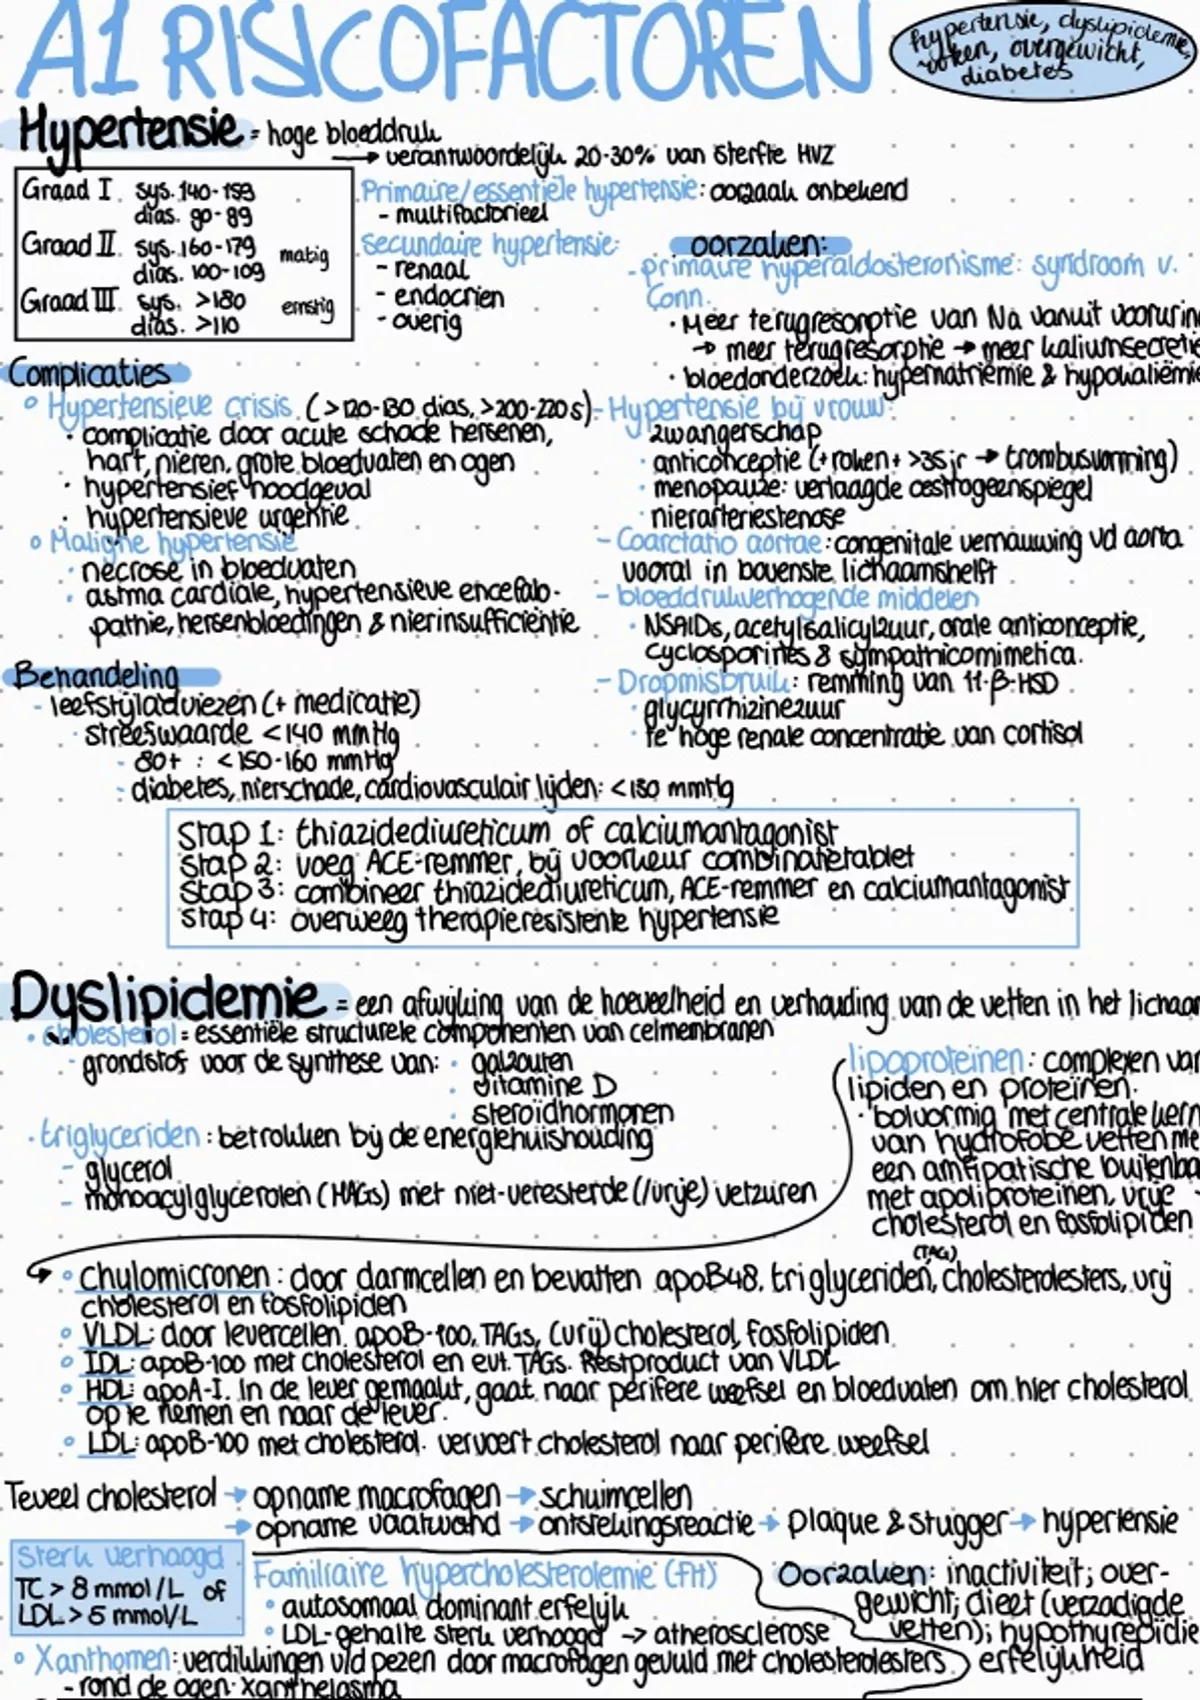 A1 RISICOFACTOREN
hypertensie, dyslipidemie,
roken, overgewicht,
diabetes
Hypertensie = hoge bloeddruk
→ verantwoordelijk 20-30% van sterfte HVZ
Graad I sys. 140-159
dias. 90-89
Graad II sys. 160-179 matig
dias. 100-109
Graad III sys. >180 ernstig
dias. >110
Primaire/essentiële hypertensie: oorzaak onbekend
- multifactorieel
Secundaire hypertensie:
- renaal
- endocrien
- overig
oorzaken:
- primaire hyperaldosteronisme: syndroom v.
Conn.
· Meer terugresorptie van Na vanuit voorurin
→ meer terugresorptie → meer kaliumsecretie
· bloedonderzoek: hypernatriemie & hypokaliëmie
Complicaties
° Hypertensieve crisis (>120-130 dias, >200-220 s)
· complicatie door acute schade hersenen,
hart, nieren, grote bloedvaten en ogen
· hypertensief noodgeval
· hypertensieve urgentie
° Maligne hypertensie
· necrose in bloedvaten
· astma cardiale, hypertensieve encefalo-
pathie, hersenbloedingen & nierinsufficiëntie
- Hypertensie bij vrouw:
· zwangerschap
· anticonceptie (+ roken + >35 jr → trombusvorming)
· menopauze: verlaagde oestrogeenspiegel
· nierarteriestenose
- Coarctatio aortae: congenitale vernauwing vd aorta
vooral in bovenste lichaamshelft
- bloeddrukverhogende middelen
· NSAIDs, acetylsalicylzuur, orale anticonceptie,
cyclosporines & sympathicomimetica.
- Dropmisbruik: remming van 11-β-HSD
· glycyrrhizinezuur
· te hoge renale concentratie van cortisol
Behandeling
- leefstijladviezen (+ medicatie)
· streefwaarde <140 mmHg
- 80+ : <150-160 mmHg
- diabetes, nierschade, cardiovasculair lijden: <130 mmHg
Stap 1: thiazidediureticum of calciumantagonist
Stap 2: voeg ACE-remmer, bij voorkeur combinatietablet
Stap 3: combineer thiazidediureticum, ACE-remmer en calciumantagonist
Stap 4: overweeg therapieresistente hypertensie
Dyslipidemie = een afwijking van de hoeveelheid en verhouding van de vetten in het lichaam
· cholesterol = essentiële structurele componenten van celmembranen
- grondstof voor de synthese van: · galzouten
· vitamine D
· steroïdhormonen
· triglyceriden: betrokken bij de energiehuishouding
- glycerol
- monoacylglycerolen (MAGs) met niet-veresterde (/vrije) vetzuren
lipoproteïnen: complexen van
lipiden en proteïnen.
· bolvormig met centrale kern
van hydrofobe vetten me
een amfipatische buitenla
met apoliproteinen, vrije
cholesterol en fosfolipiden
° Chylomicronen: door darmcellen en bevatten apoB48, triglyceriden (TAG), cholesterolesters, vrij
cholesterol en fosfolipiden
° VLDL: door levercellen. apoB-100, TAGs, (vrij) cholesterol, fosfolipiden
° IDL: apoB-100 met cholesterol en evt. TAGs. Restproduct van VLDL
° HDL: apoA-I. In de lever gemaakt, gaat naar perifere weefsel en bloedvaten om hier cholesterol
op te nemen en naar de lever.
° LDL: apoB-100 met cholesterol. vervoert cholesterol naar perifere weefsel
Teveel cholesterol → opname macrofagen → schuimcellen
→ opname vaatwand → ontstekingsreactie → plaque & stugger → hypertensie
Sterk verhoogd
TC > 8 mmol/L of
LDL > 5 mmol/L
Familiaire hypercholesterolemie (FH)
° autosomaal dominant erfelijk
° LDL-gehalte sterk verhoogd → atherosclerose
Oorzaken: inactiviteit; over-
gewicht; dieet (verzadigde
vetten); hypothyreoïdie
erfelijkheid
° Xanthomen: verdikkingen v/d pezen door macrofagen gevuld met cholesterolesters
- rond de ogen: xanthelasma